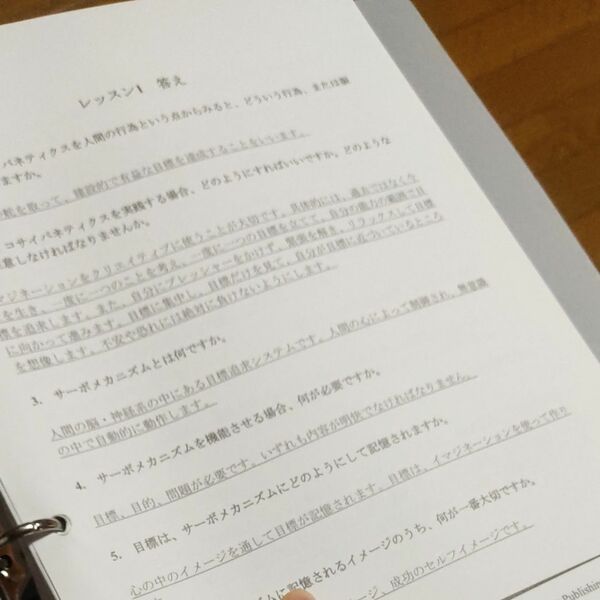 レッスン1　答え
バネティクスを人間の行為という点からみると、どういう行為、または脳
ますか。
舵を取って、建設的で有益な目標を達成することをいいます。
コサイバネティクスを実践する場合、どのようにすればいいですか。どのような
意しなければなりませんか。
マジネーションをクリエイティブに使うことが大切です。具体的には、過去ではなく生
を生き、一度に一つのことを考え、一度に一つの目標を立てて、自分の能力の範囲で目
標を追求します。また、自分にプレッシャーをかけず、緊張を解き、リラックスして目標
に向かって進みます。目標に集中し、目標だけを見て、自分が目標に近づいているところ
を想像します。不安や恐れには絶対に負けないようにします。
3. サーボメカニズムとは何ですか。
人間の脳・神経系の中にある目標追求システムです。人間の心によって制御され、無意識
の中で自動的に動作します。
4. サーボメカニズムを機能させる場合、何が必要ですか。
目標、目的、問題が必要です。いずれも内容が明快でなければなりません。
5. 目標は、サーボメカニズムにどのようにして記憶されますか。
心の中のイメージを通して目標が記憶されます。目標は、イマジネーションを使って作り
ズムに記憶されるイメージのうち、何が一番大切ですか。
ージ、成功のセルフイメージです。
Publishin